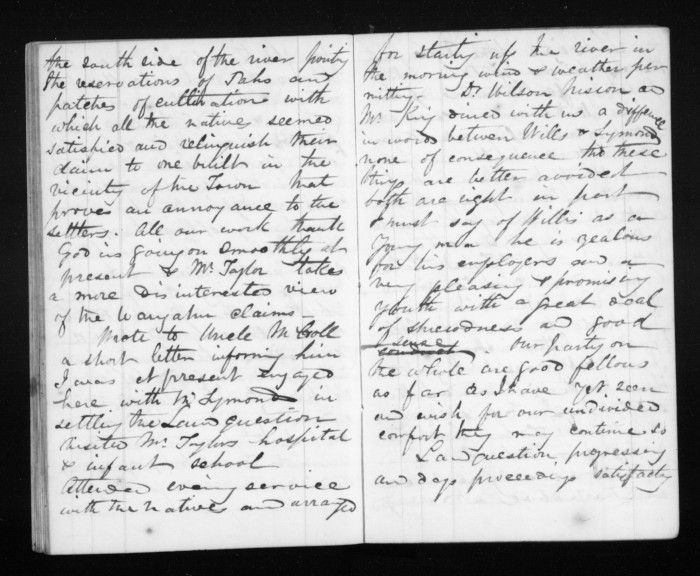 the south side of the river pointg
the reservations of Pahs and
patches of cultivations with
which all the native seemed
satisfied and relinquish their
claim to one built in the
vicinity of the Town that
proves an annoyance to the
settlers. All our work thank
God is going on smoothly at
present & Mr. Taylor takes
a more disinterested view
of the Wangahu claims —
Wrote to Uncle
a short letter informg him
I was at present engaged
here with Mr Symond in
settling the Land question
visited Mr. Taylors hospital
& infant school
Attended eveing service
with the natives and arraged
for startig up the river in
the morning wind & weather per
mitting. Dr. Wilson Nixon and
Mr. King dined with us a diffence
in words between Wills & Symond
none of consequence tho these
things are better avoided
both are right in part
I must say of Willis as a
young man he is zealous
for his employers and a
very pleasing & promising
youth with a great deal
of shrewdness and good
sense
conduct. our party on
the whole are good fellows
as far as I have yet seen
and wish for our undivided
comfort they may continue so
Land question progressing
and days proceedings satisfactry